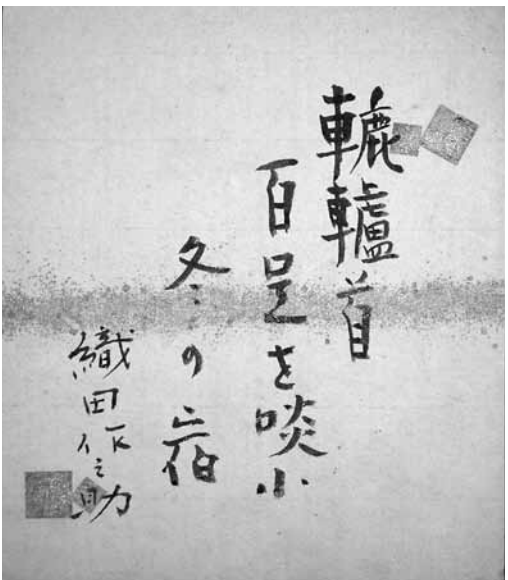 轆轤首
百足を啖ふ
冬の宿
織田作之助